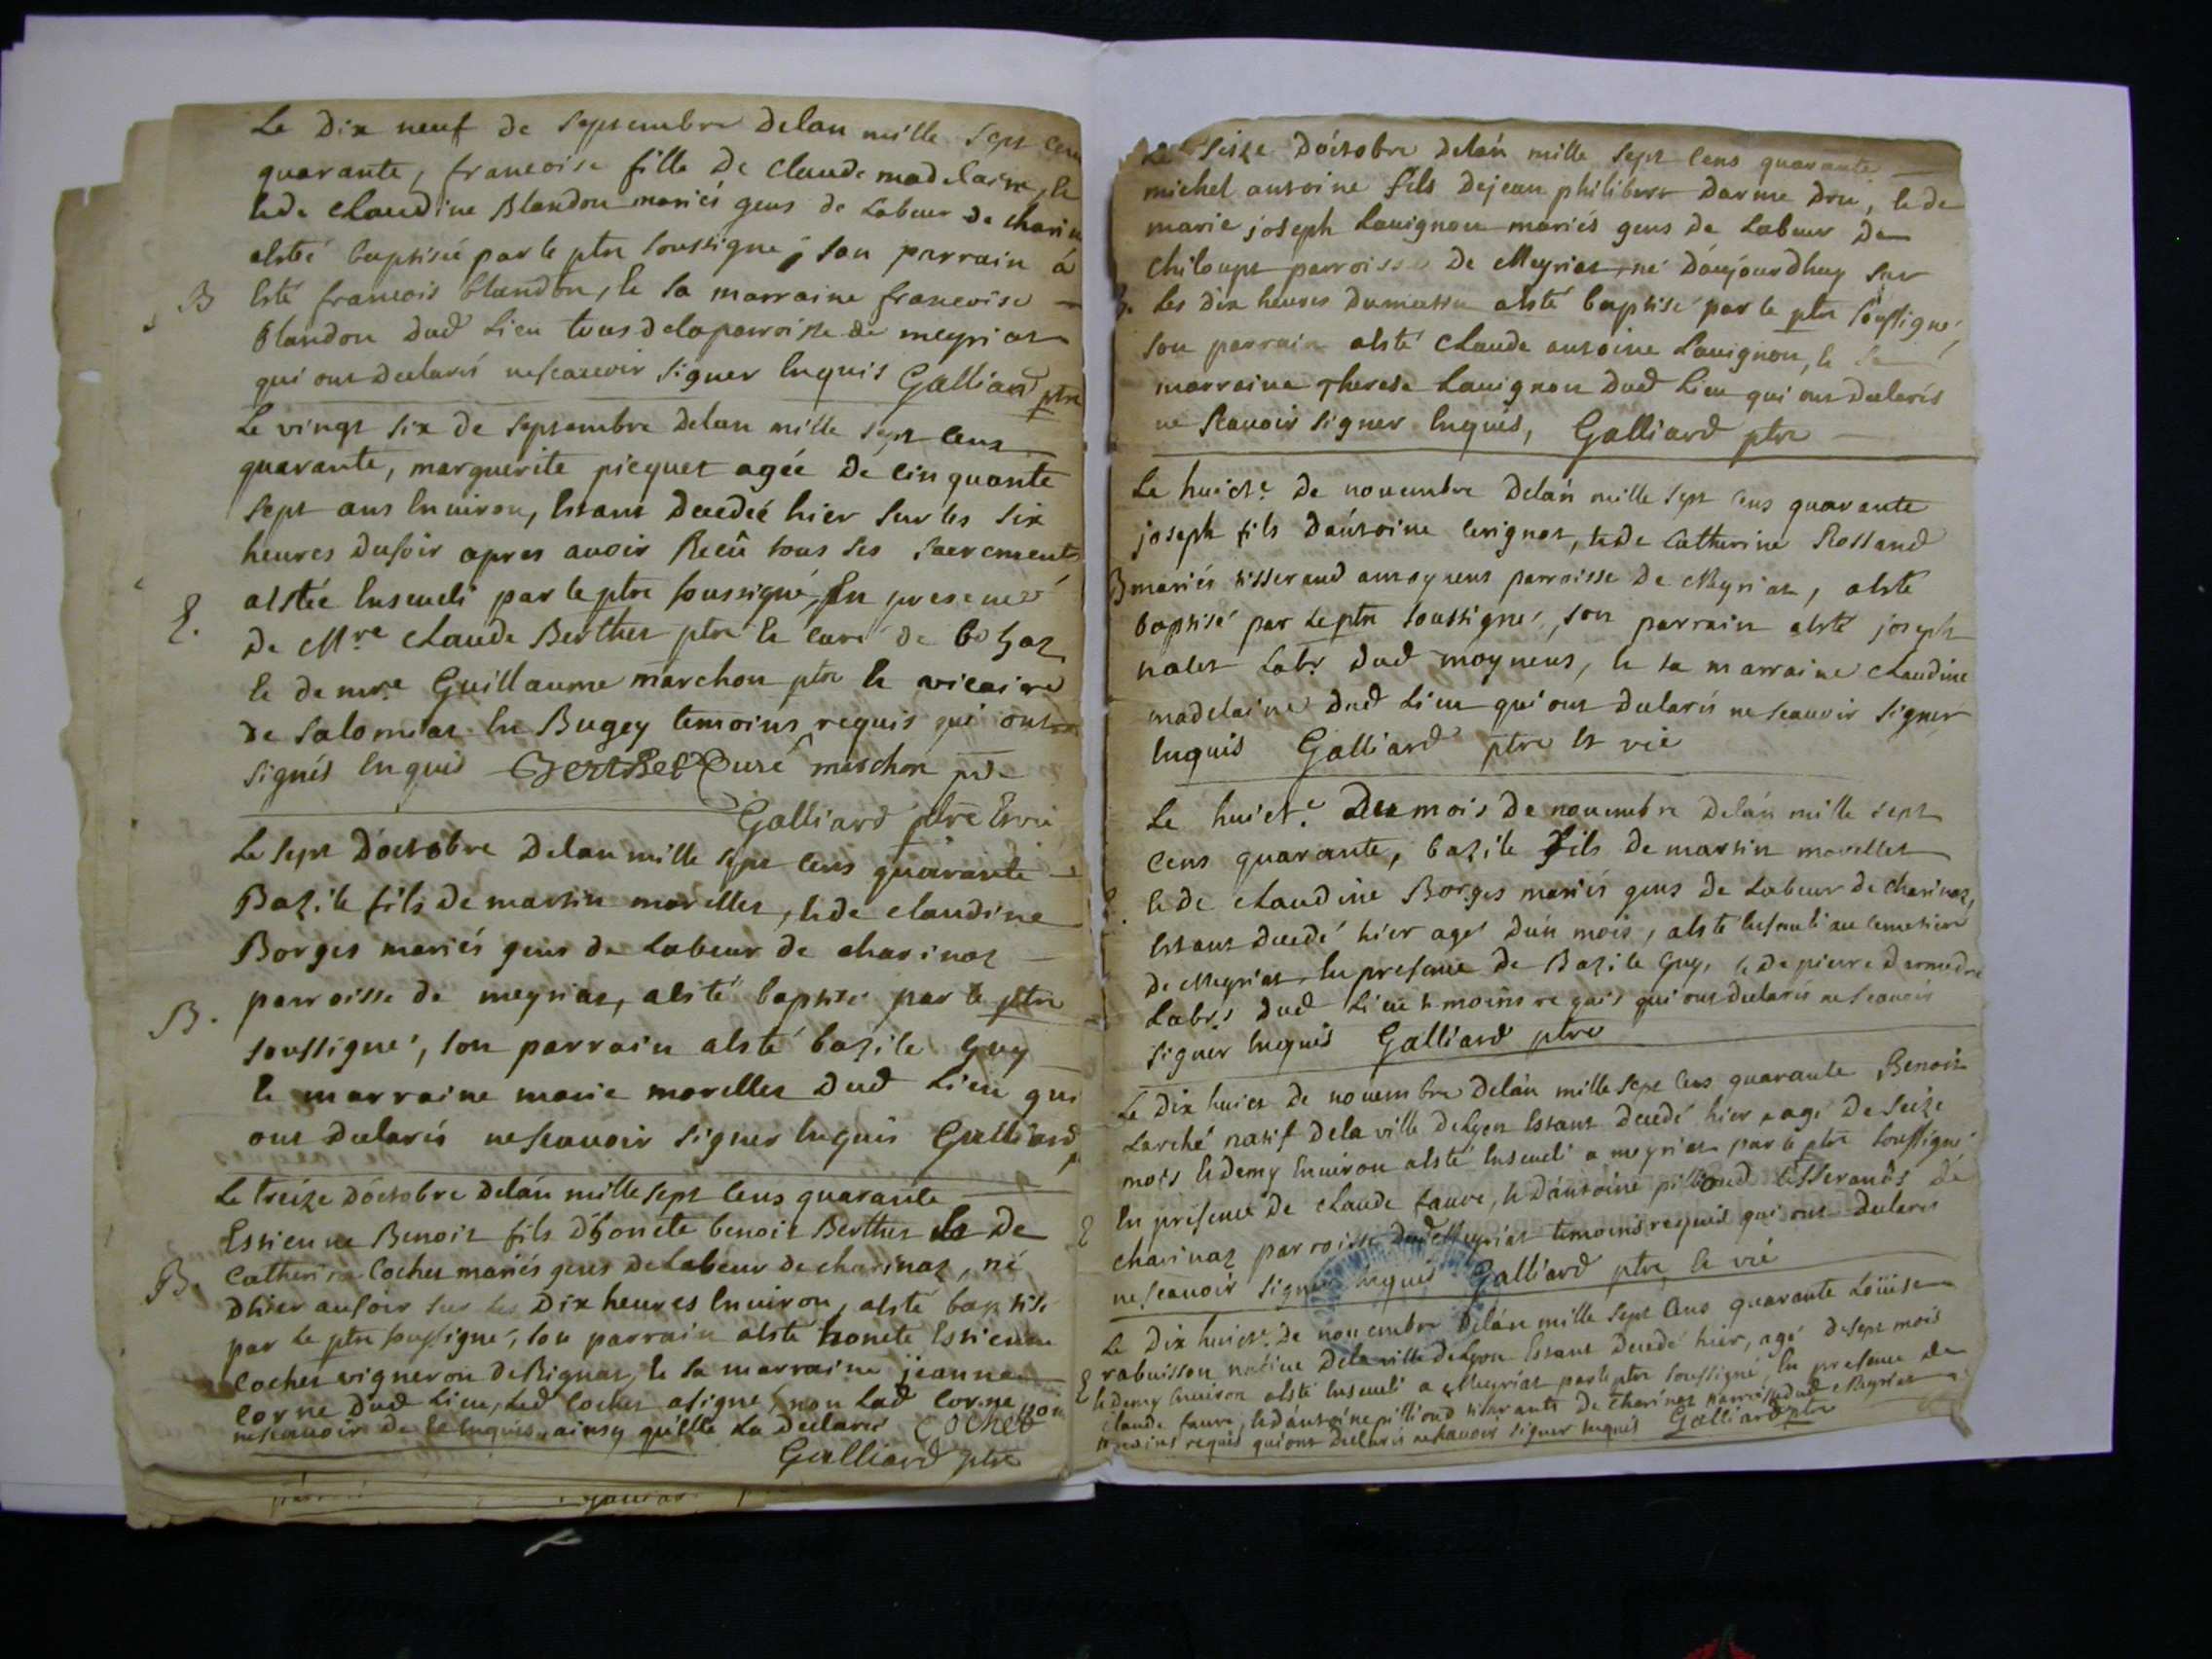 Le Dix neuf de Septembre Delan mille Sept cens
quarante, francoise fille De Claude madelaine, &
& de Claudine Blandon mariés gens de Labeur De charin
alsteé baptiseé par le ptre soussigné, son parrain á
B
Esté francois blandon, & sa marraine francoise
blandon Dud Lieu tous de la parroisse de meyriat
qui ont declarés ne scauoir signer Enquis Galliard ptre
Le vingt Six De Septembre Delan mille Sept cens
quarante, marguerite picquet agée De cinquante
Sept ans Enuiron, Estant Decedeé hier sur les Six
heures dusoir apres auoir Recû tous ses sacrements
E.
alsteé Enseueli par le ptre soussigné, En presence
De Mre Claude Berthet ptre & curé de bohaz
& de mre Guillaume marchon ptre & vicaire
De Salomiat En Bugey temoins requis qui ont
signés Enquis Berthet Curé marchon ptre
Galliard ptre & vic
Le Sept Dóctobre Delan mille sept cens quarante
Bazile fils de martin morellet, & de claudine
Borges mariés gens de Labeur de charinaz
B.
parroisse de meyriaz, alsté baptisé par le ptre
soussigné, son parrain alsté bazile Guy
& marraine marie morellet Dud Lieu qui
ont declarés ne scauoir signer Enquis Galliard p
Le treize Dóctobre Delán mille sept cens quarante
Estienne Benoit fils D'honete benoit Berthet & De
B.
Catherine Cochet mariés gens de Labeur de charinaz, né
D'hier au soir sur les Dix heures Enuiron, alsté baptisé
par le ptre soussigné, son parrain alsté honete Estienne
Cochet vigneron de Rignat, & sa marraine jeanne
Corne Dud Lieu, Led Cochet asigné, non Lad Corne pour
ne scauoir de ce Enquis, ainsy quélle La declaré Cochet
Galliard ptre
Le Seize Dóctobre Delán mille Sept cens quarante
michel antoine fils De jean philibert Darme Dru, & de
marie joseph Lauignon mariés gens de Labeur De
chiloupt parroisse De Meyriat, né Daujourdhuy Sur
B.
Les Dix heures Dumatin alsté baptisé par le ptre soussigné,
son parrain alsté Claude antoine Lauignon, & sa
marraine Therese Lauignon Dud Lieu qui ont declarés
ne Scauoir signer Enquis, Galliard ptre
Le huicte De nouembre Delán mille sept cens quarante
joseph fils Dántoine Cerignat, & de Catherine Rolland
B
mariés tisserand a moyneus parroisse De Meyriat, alsté
baptisé par le ptre soussigné, son parrain alsté joseph
nalet Labr Dud moyneus, & sa marraine Claudine
madelaine Dud Lieu qui ont declarés ne scauoir signer
Enquis Galliard ptre & vic
Le huicte Du mois De nouembre Delán mille sept
cens quarante, bazile fils De martin morellet
E.
& de Claudine Borges mariés gens de Labeur de charinaz,
Estant decedé hier agé Dún mois, alsté Enseueli au cemetiere
De Meyriat En presence De Bazile Guy, & De pierre Darmedru
Labrs Dud Lieu temoins requis qui ont declarés ne scauoir
signer Enquis Galliard ptre
Le Dix huict De nouembre Delán mille Sept cens quarante Benoit
Larché natif De la ville De Lyon Estant Decedé hier, agé De Seize
mois & demy Enuiron alsté Enseueli a meyriat par le ptre soussigné
E
En presence De Claude faure, & Dántoine pilliond tisserands De
charinaz parroisse Dud Meyriat temoins requis qui ont declarés
ne scauoir signer Enquis Galliard ptre & vic
Le Dix huicte De nouembre Delán mille Sept cens quarante Loüise
rabuisson natiue De la ville De Lyon Estant Decedé hier, agé De sept mois
E
& demy Enuiron alsté Enseueli a Meyriat par le ptre soussigné, En presence De
Claude faure, & Dántoine pilliond tisserants De charinaz parroisse Dud Meyriat
temoins requis qui ont declarés ne scauoir signer Enquis Galliard ptre